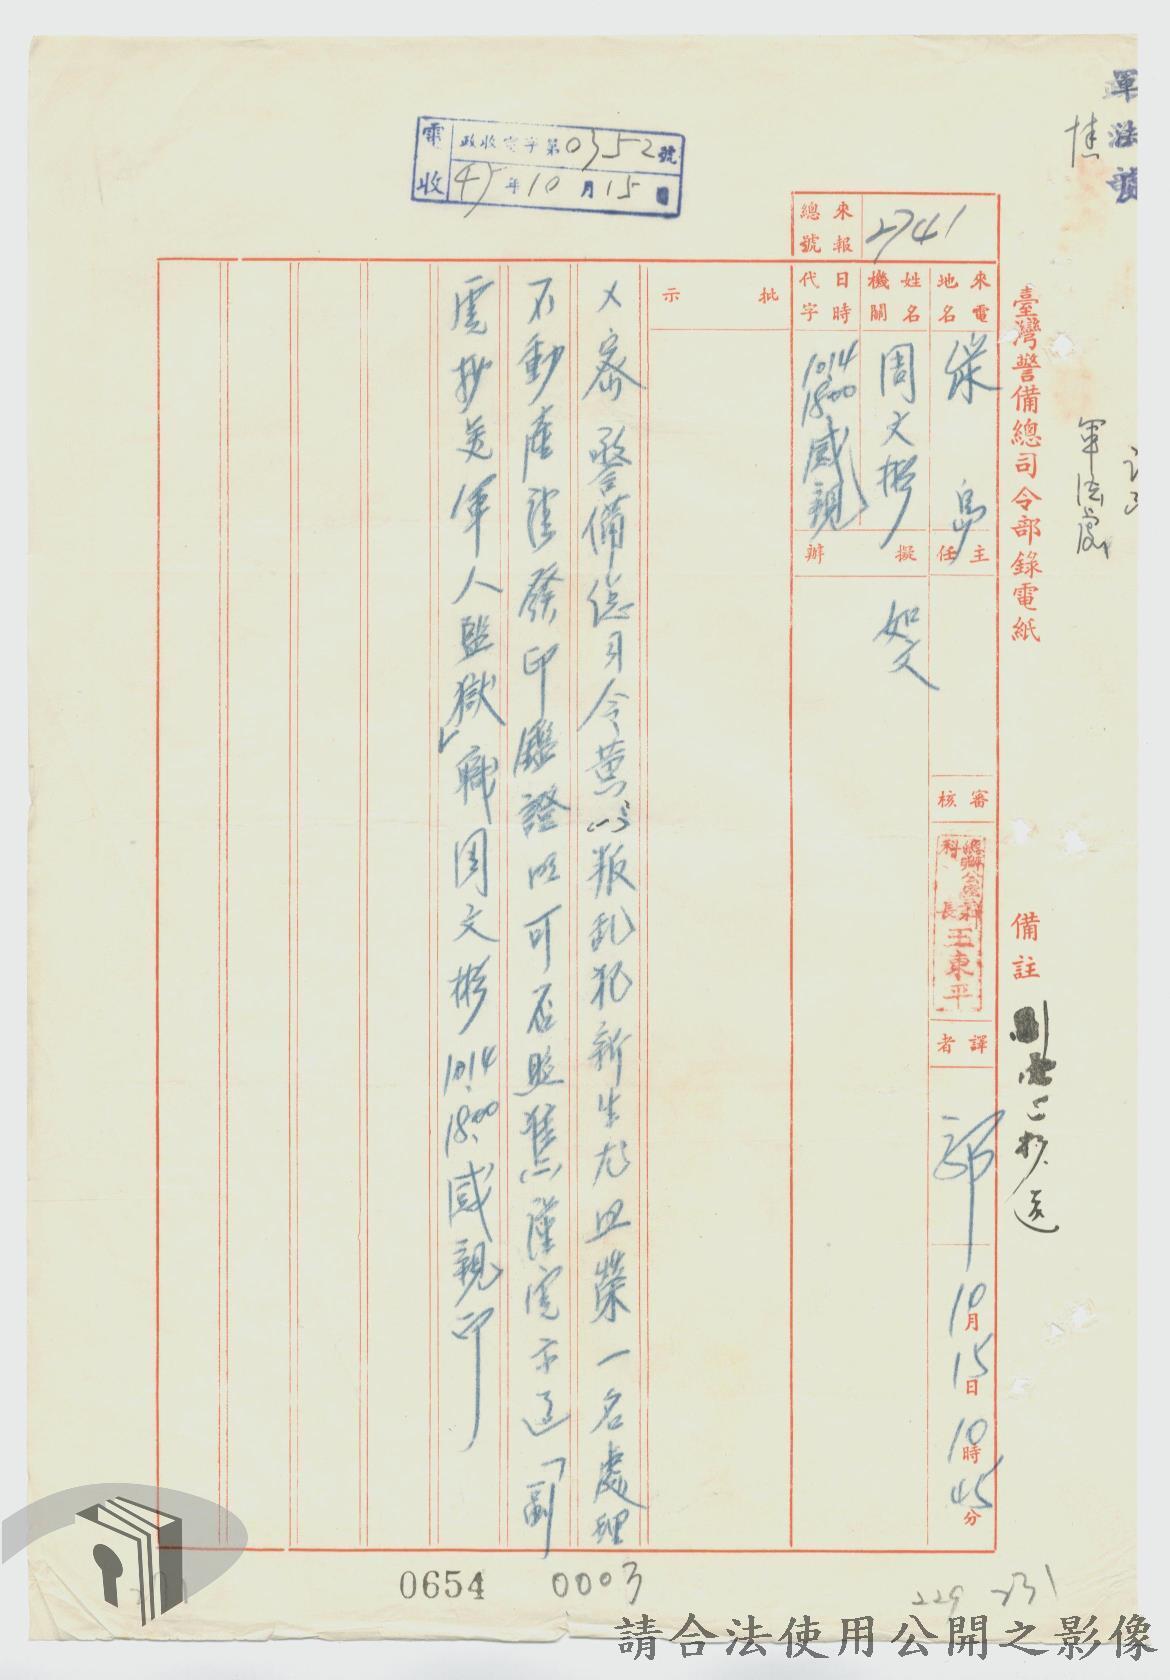 軍法
電收
政收電字第0352號
47年10月15日
臺灣警備總司令部錄電紙
軍法處
備註
來報總號
2741
來電地名
島
姓名機關
周文彬
日時代字
10.14
18.00
威親
主任
擬辦
如文
審核
科長
王東平
譯者
郭
10月15日10時45分
批示
密 警備總司令黃 叛乱犯新生 血榮一名處理
不動產 發印鑑證明可否照准謹電示遵「副
電抄送軍人監獄」職周文彬10.14 18.00威親印
0654
0003
229
231
請合法使用公開之影像